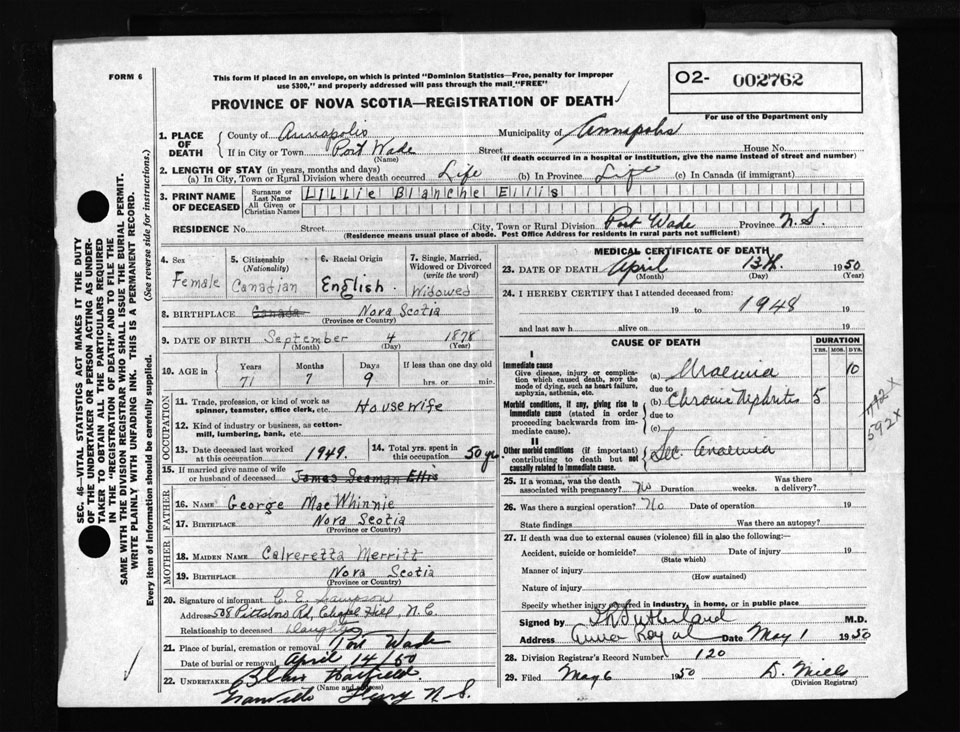 FORM 6
This form if placed in an envelope, on which is printed "Dominion Statistics—Free, penalty for improper
use $300," and properly addressed will pass through the mail "FREE"
O2- 002762
For use of the Department only
PROVINCE OF NOVA SCOTIA—REGISTRATION OF DEATH
SEC. 46—VITAL STATISTICS ACT MAKES IT THE DUTY
OF THE UNDERTAKER OR PERSON ACTING AS UNDER-
TAKER TO OBTAIN ALL THE PARTICULARS REQUIRED
IN THE "REGISTRATION OF DEATH" AND TO FILE THE
SAME WITH THE DIVISION REGISTRAR WHO SHALL ISSUE THE BURIAL PERMIT.
WRITE PLAINLY WITH UNFADING INK. THIS IS A PERMANENT RECORD.
Every item of information should be carefully supplied. (See reverse side for instructions.)
1. PLACE OF DEATH
County of Annapolis Municipality of Annapolis
If in City or Town Port Wade Street House No.
(Name) (If death occurred in a hospital or institution, give the name instead of street and number)
2. LENGTH OF STAY (in years, months and days)
(a) In City, Town or Rural Division where death occurred Life (b) In Province Life (c) In Canada (if immigrant)
3. PRINT NAME OF DECEASED
Surname or Last Name Lillie Blanche Ellis
All Given or Christian Names
RESIDENCE No. Street City, Town or Rural Division Port Wade Province N.S.
(Residence means usual place of abode. Post Office Address for residents in rural parts not sufficient)
4. Sex Female
5. Citizenship (Nationality) Canadian
6. Racial Origin English.
7. Single, Married, Widowed or Divorced (write the word) Widowed
8. BIRTHPLACE Canada Nova Scotia
(Province or Country)
9. DATE OF BIRTH September 4 1878
(Month) (Day) (Year)
10. AGE in Years Months Days If less than one day old
71 7 9 hrs. or min.
OCCUPATION
11. Trade, profession, or kind of work as
spinner, teamster, office clerk, etc. Housewife
12. Kind of industry or business, as cotton-
mill, lumbering, bank, etc.
13. Date deceased last worked
at this occupation 1949.
14. Total yrs. spent in
this occupation 50 yr.
15. If married give name of wife
or husband of deceased James Seaman Ellis
FATHER
16. NAME George MacWhinnie
17. BIRTHPLACE Nova Scotia
(Province or Country)
MOTHER
18. MAIDEN NAME Calveretta Merritt
19. BIRTHPLACE Nova Scotia
(Province or Country)
20. Signature of informant C. E. Sampson
Address 508 Pittsboro Rd, Chapel Hill, N.C.
Relationship to deceased Daughter
21. Place of burial, cremation or removal Port Wade
Date of burial or removal April 14/50
22. UNDERTAKER Blair Hatfield
(Name and address)
Granville Ferry N.S.
MEDICAL CERTIFICATE OF DEATH
23. DATE OF DEATH April 13th. 1950
(Month) (Day) (Year)
24. I HEREBY CERTIFY that I attended deceased from:
19 to 1948 19
and last saw h alive on 19
CAUSE OF DEATH DURATION
YRS. MOS. DYS.
I
Immediate cause
Give disease, injury or complica-
tion which caused death, NOT the
mode of dying, such as heart failure,
asphyxia, asthenia, etc.
(a) Uraemia 10
due to
Morbid conditions, if any, giving rise to
immediate cause (stated in order
proceeding backwards from im-
mediate cause).
(b) Chronic Nephritis 5
due to
(c)
II
Other morbid conditions (if important)
contributing to death but not
causally related to immediate cause.
Sec. Anaemia
592X
25. If a woman, was the death
associated with pregnancy? No Duration weeks. Was there
a delivery?
26. Was there a surgical operation? No Date of operation 19
State findings Was there an autopsy?
27. If death was due to external causes (violence) fill in also the following:—
Accident, suicide or homicide? Date of injury 19
(State which)
Manner of injury
(How sustained)
Nature of injury
Specify whether injury occurred in industry, in home, or in public place
Signed by Sutherland M.D.
Address Anna Royal Date May 1 1950
28. Division Registrar's Record Number 120
29. Filed May 6 1950 D. Mills
(Division Registrar)